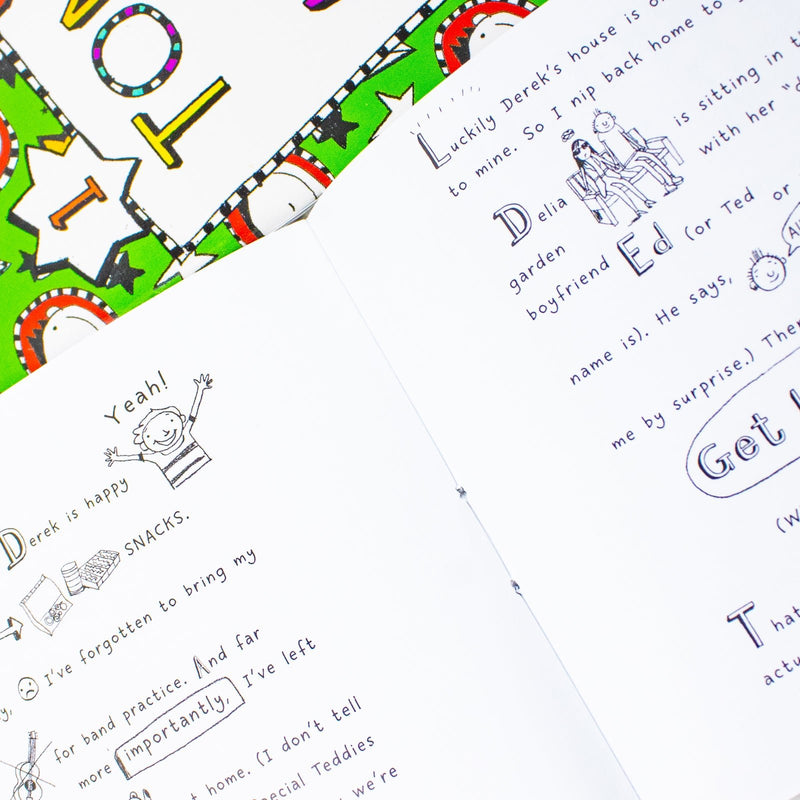 TO
1
Yeah!
Derek is happy
SNACKS.
I've forgotten to bring my
for band practice. And far
more importantly, I've left
at home. (I don't tell
Special Teddies
we're
Luckily Derek's house is
to mine. So I nip back home to
Delia is sitting in
garden with her "d
boyfriend Ed (or Ted or
name is). He says, Al
me by surprise.) Then
Get
(W
That
actu